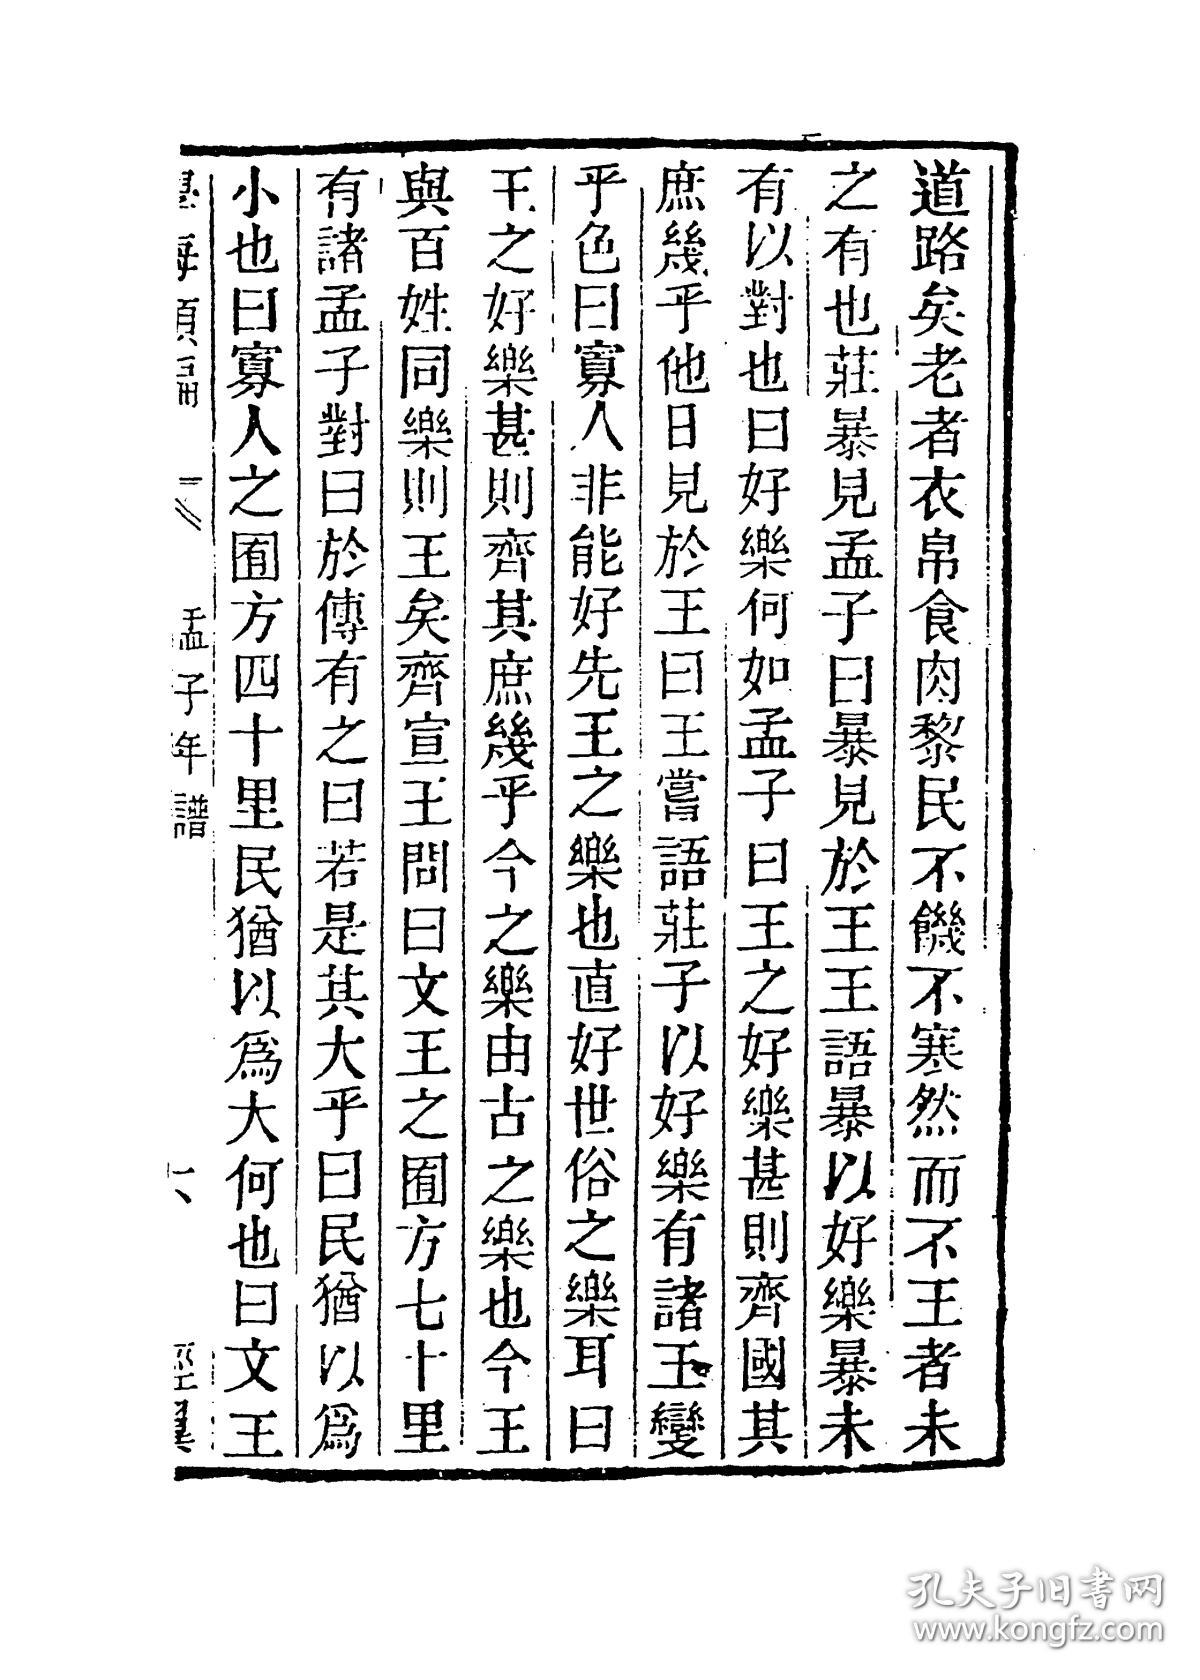 道路矣老者衣帛食肉黎民不饑不寒然而不王者未
之有也莊暴見孟子曰暴見於王王語暴以好樂暴未
有以對也曰好樂何如孟子曰王之好樂甚則齊國其
庶幾乎他日見於王曰王嘗語莊子以好樂有諸王變
乎色曰寡人非能好先王之樂也直好世俗之樂耳曰
王之好樂甚則齊其庶幾乎今之樂由古之樂也今王
與百姓同樂則王矣齊宣王問曰文王之囿方七十里
有諸孟子對曰於傳有之曰若是其大乎曰民猶以為
小也曰寡人之囿方四十里民猶以為大何也曰文王
孟子年譜
孔夫子旧书网
www.kongfz.com